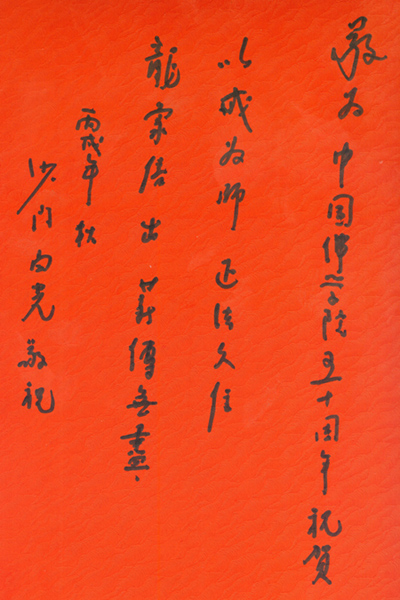 敬为中国佛学院五十周年祝贺
以戒为师 正法久住
龍象倍出 薪傳無盡
丙戌年秋
沙门光敬祝